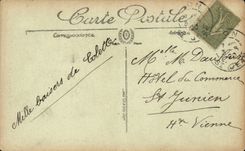 Carte Postale
Correspondance
Mille baisers de Colette
M. & Mlle
Hôtel du Commerce
St Junien
Hte Vienne